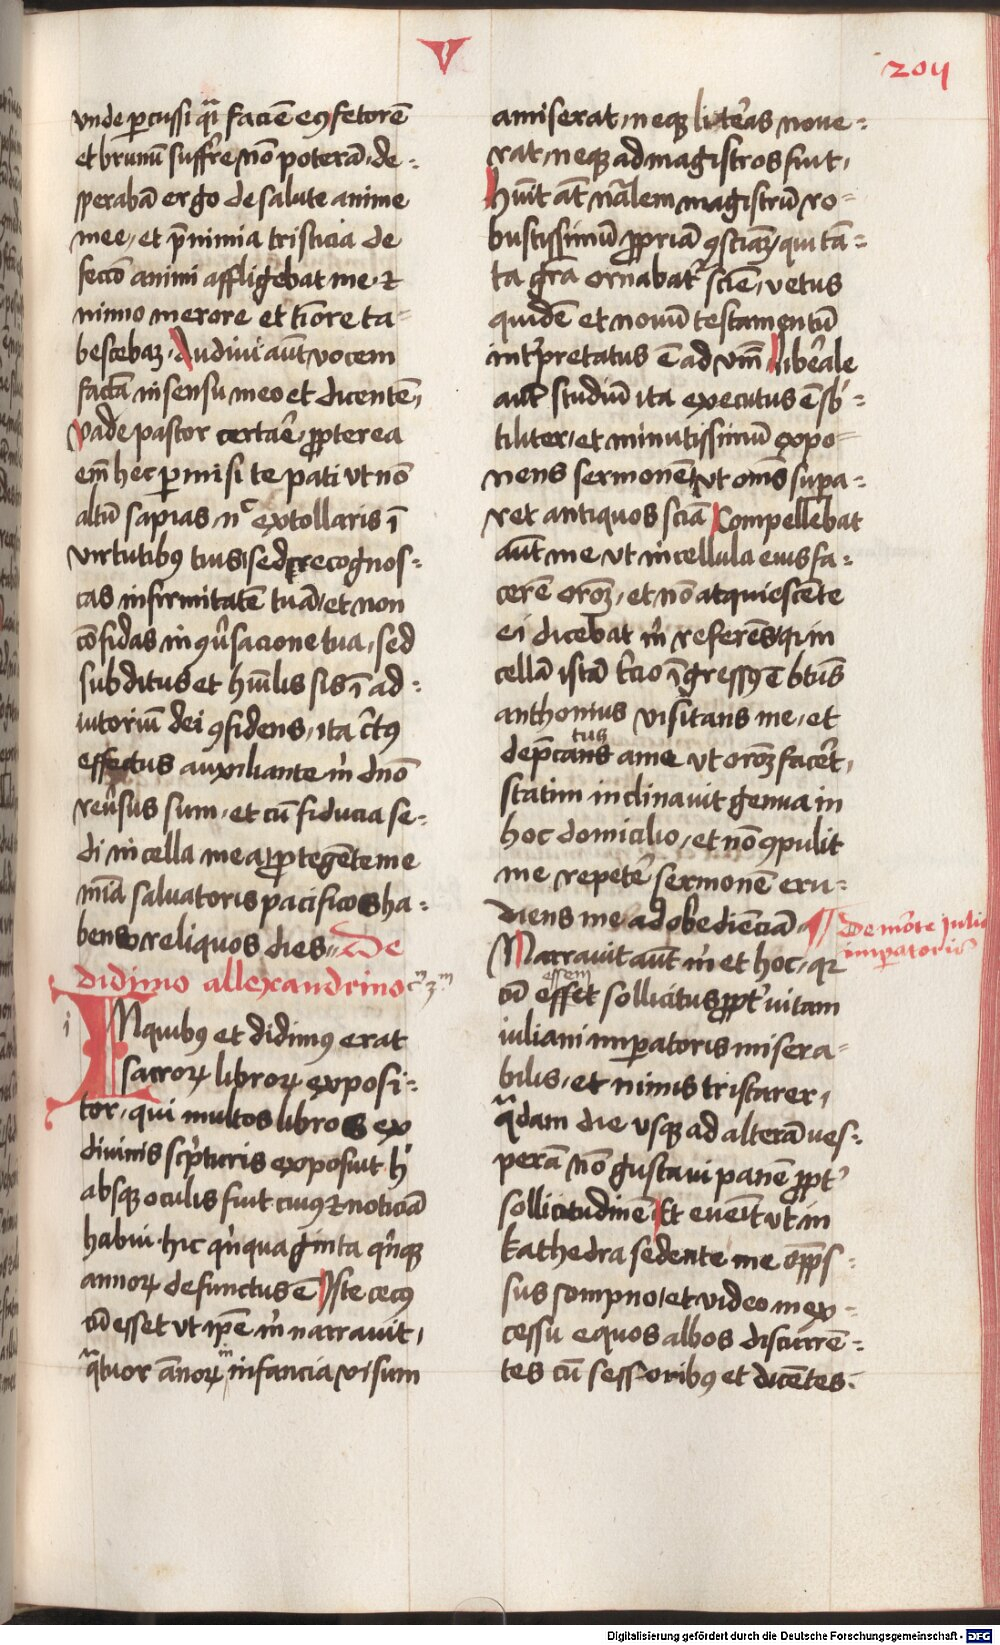 V
204
vnde ꝑcussi qͥ faciē eꝯ fetorē
et brumū suffr̄e nō poterā de-
sperabā ergo de salute anime
mee, et p̄ nimia tristicia de
animi affligebat me ⁊
nimio merore et timore ta-
bescebaꝫ. Audiui aūt vocem
factā in sensu meo et dicentē,
Vade pastor propterea
em̄ hec ꝑmisi te pati vt nō
altū sapias, nͨ extollaris ī
virtutibꝰ tuis, sed recognos-
cas infirmitatē tuā, et non
cōfidas in tua, sed
subditus et hūilis sis ī ad-
iutoriū dei ꝯfidens, ita c̄tꝰ
effectus auxiliante m̄ dn̄o
reu̓sus sum, et cū fiducia se-
di in cella mea ꝓtegēte me
mīa saluatoris pacificos ha-
bens reliquos dies. De
didimo allexandrino
i
IN quibꝰ et didimꝰ erat
sacroꝝ libroꝝ exposi-
tor, qui multos libros ex
diuinis scͥpturis exposuit h̓
absqꝫ oculis fuit cuiꝰ ⁊ noticiā
habui. hic qͥnquaginta qͥnqꝫ
annoꝝ defunctus ē Iste cecꝰ
cū esset vt ip̄e m̄ narrauit,
qͣtuor ānoꝝ in infancia visum
amiserat, neqꝫ litteras noue-
rat, neqꝫ ad magistros fuit,
Huīt aūt nāalem magistrū ro-
bustissimū ꝓpriā ꝯsciaꝫ, qui tā-
ta gr̄a ornabatᷣ sciē, vetus
quidē et nouū testamentū
int̓pretatus ē ad vm̄ liberale
aut̓ studiū ita executus ē sb̓-
tiliter, et minutissimū expo-
nens sermonē, vt om̄s supa-
ret antiquos sciā Compellebat
aūt me vt in cellula eius fa-
cerē oroꝫ, et nō atquiescente
ei dicebat m̄ referēs, qi in
cellā istā t̓cio īgressꝰ ē btūs
anthonius visitans me, et
dep̄cans tus a me vt oroꝫ facerē,
statim inclinauit genua in
hoc domicilio, et nō ꝯpulit
me repete̓ sermonē eru-
diens me ad obedienciā
De morte Julia
imperatoris
Narrauit aūt m̄ et hoc, qꝛ
cū essem esset sollicitus ꝓpt̓ vitam
iuliani imꝑatoris misera-
bilis, et nimis tristarer,
qͣdam die vsqꝫ ad alterā ves-
perā nō gustaui panē ꝓpt̓
sollicitudinē Et euēit vt in
kathedra sedente me opp̄s-
sus sompno, et video in ex-
cessu equos albos discurrē-
tes cū sessoribꝰ et dicētes.
Digitalisierung gefördert durch die Deutsche Forschungsgemeinschaft - DFG